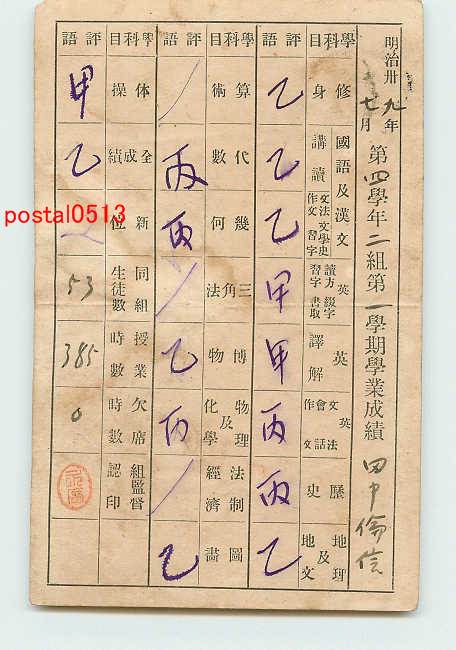 明治卅九年七月
第四學年二組第一學期學業成績 田中倫信
學科目 評語
修身 乙
國語及漢文 講讀 乙
文法 作文 文學史 習字 乙
英 讀方 習字 綴字 書取 甲
英 譯解 甲
英 作文 會話 文法 丙
歷史 丙
地理及地文 乙
學科目 評語
算術 /
代數 丙
幾何 丙
三角法 /
博物 乙
物理及化學 丙
法制經濟 /
圖畫 乙
學科目 評語
体操 甲
全成績 乙
新位
同組生徒數 53
授業時數 385
欠席時數 0
組監督認印
postal0513